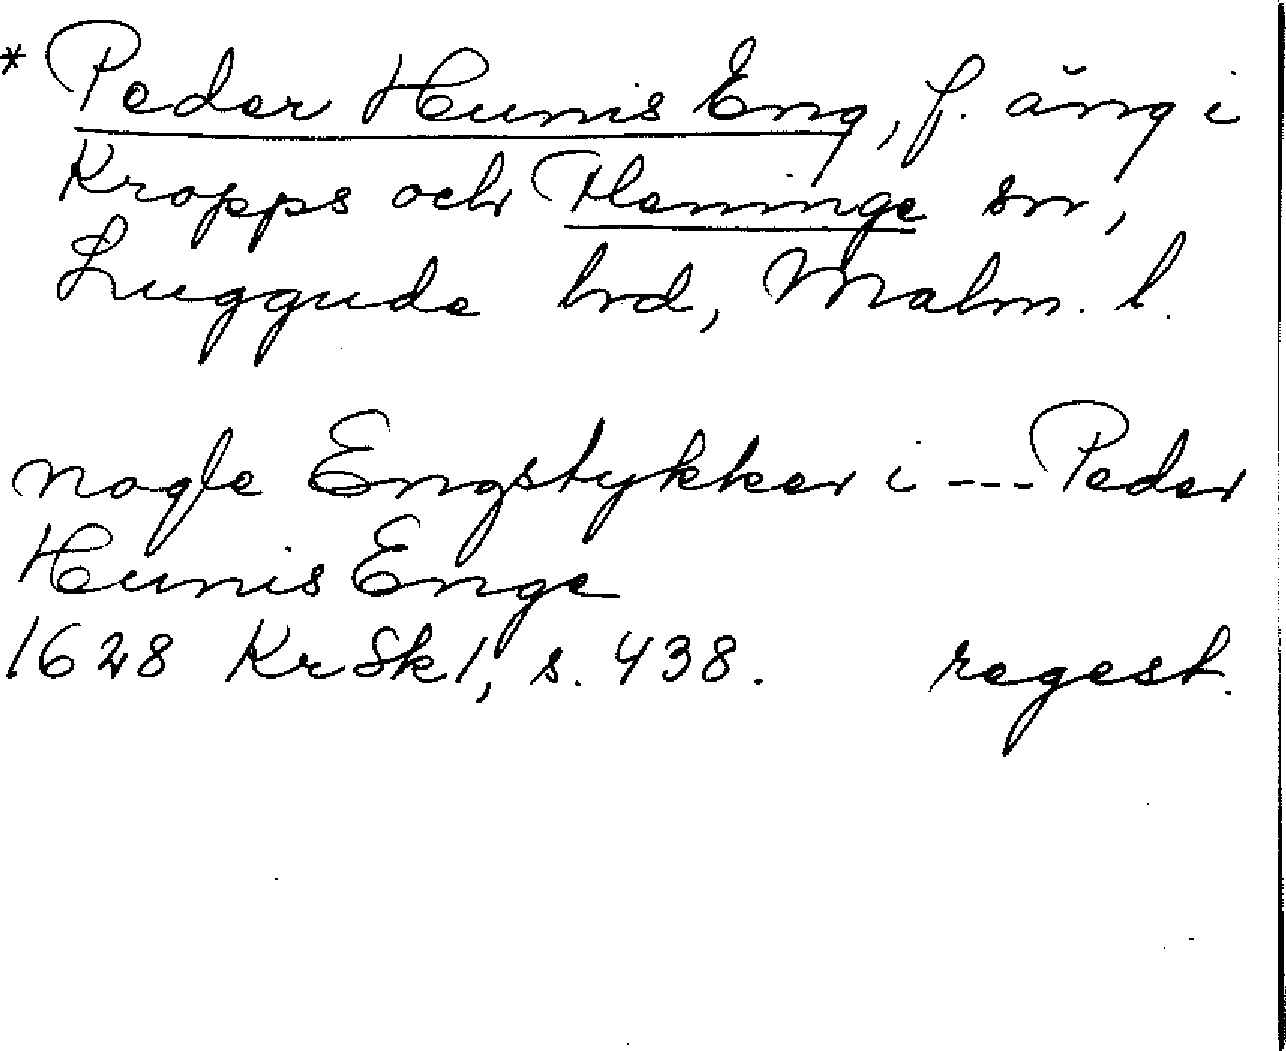 * Peder Hunis Eng, f. äng i
Kropps och Fleninge snr,
Luggude hrd, Malm. l.
nogle Engstykker i --- Peder
Hunis Enge
1628 KrSkl, s. 438. regest.